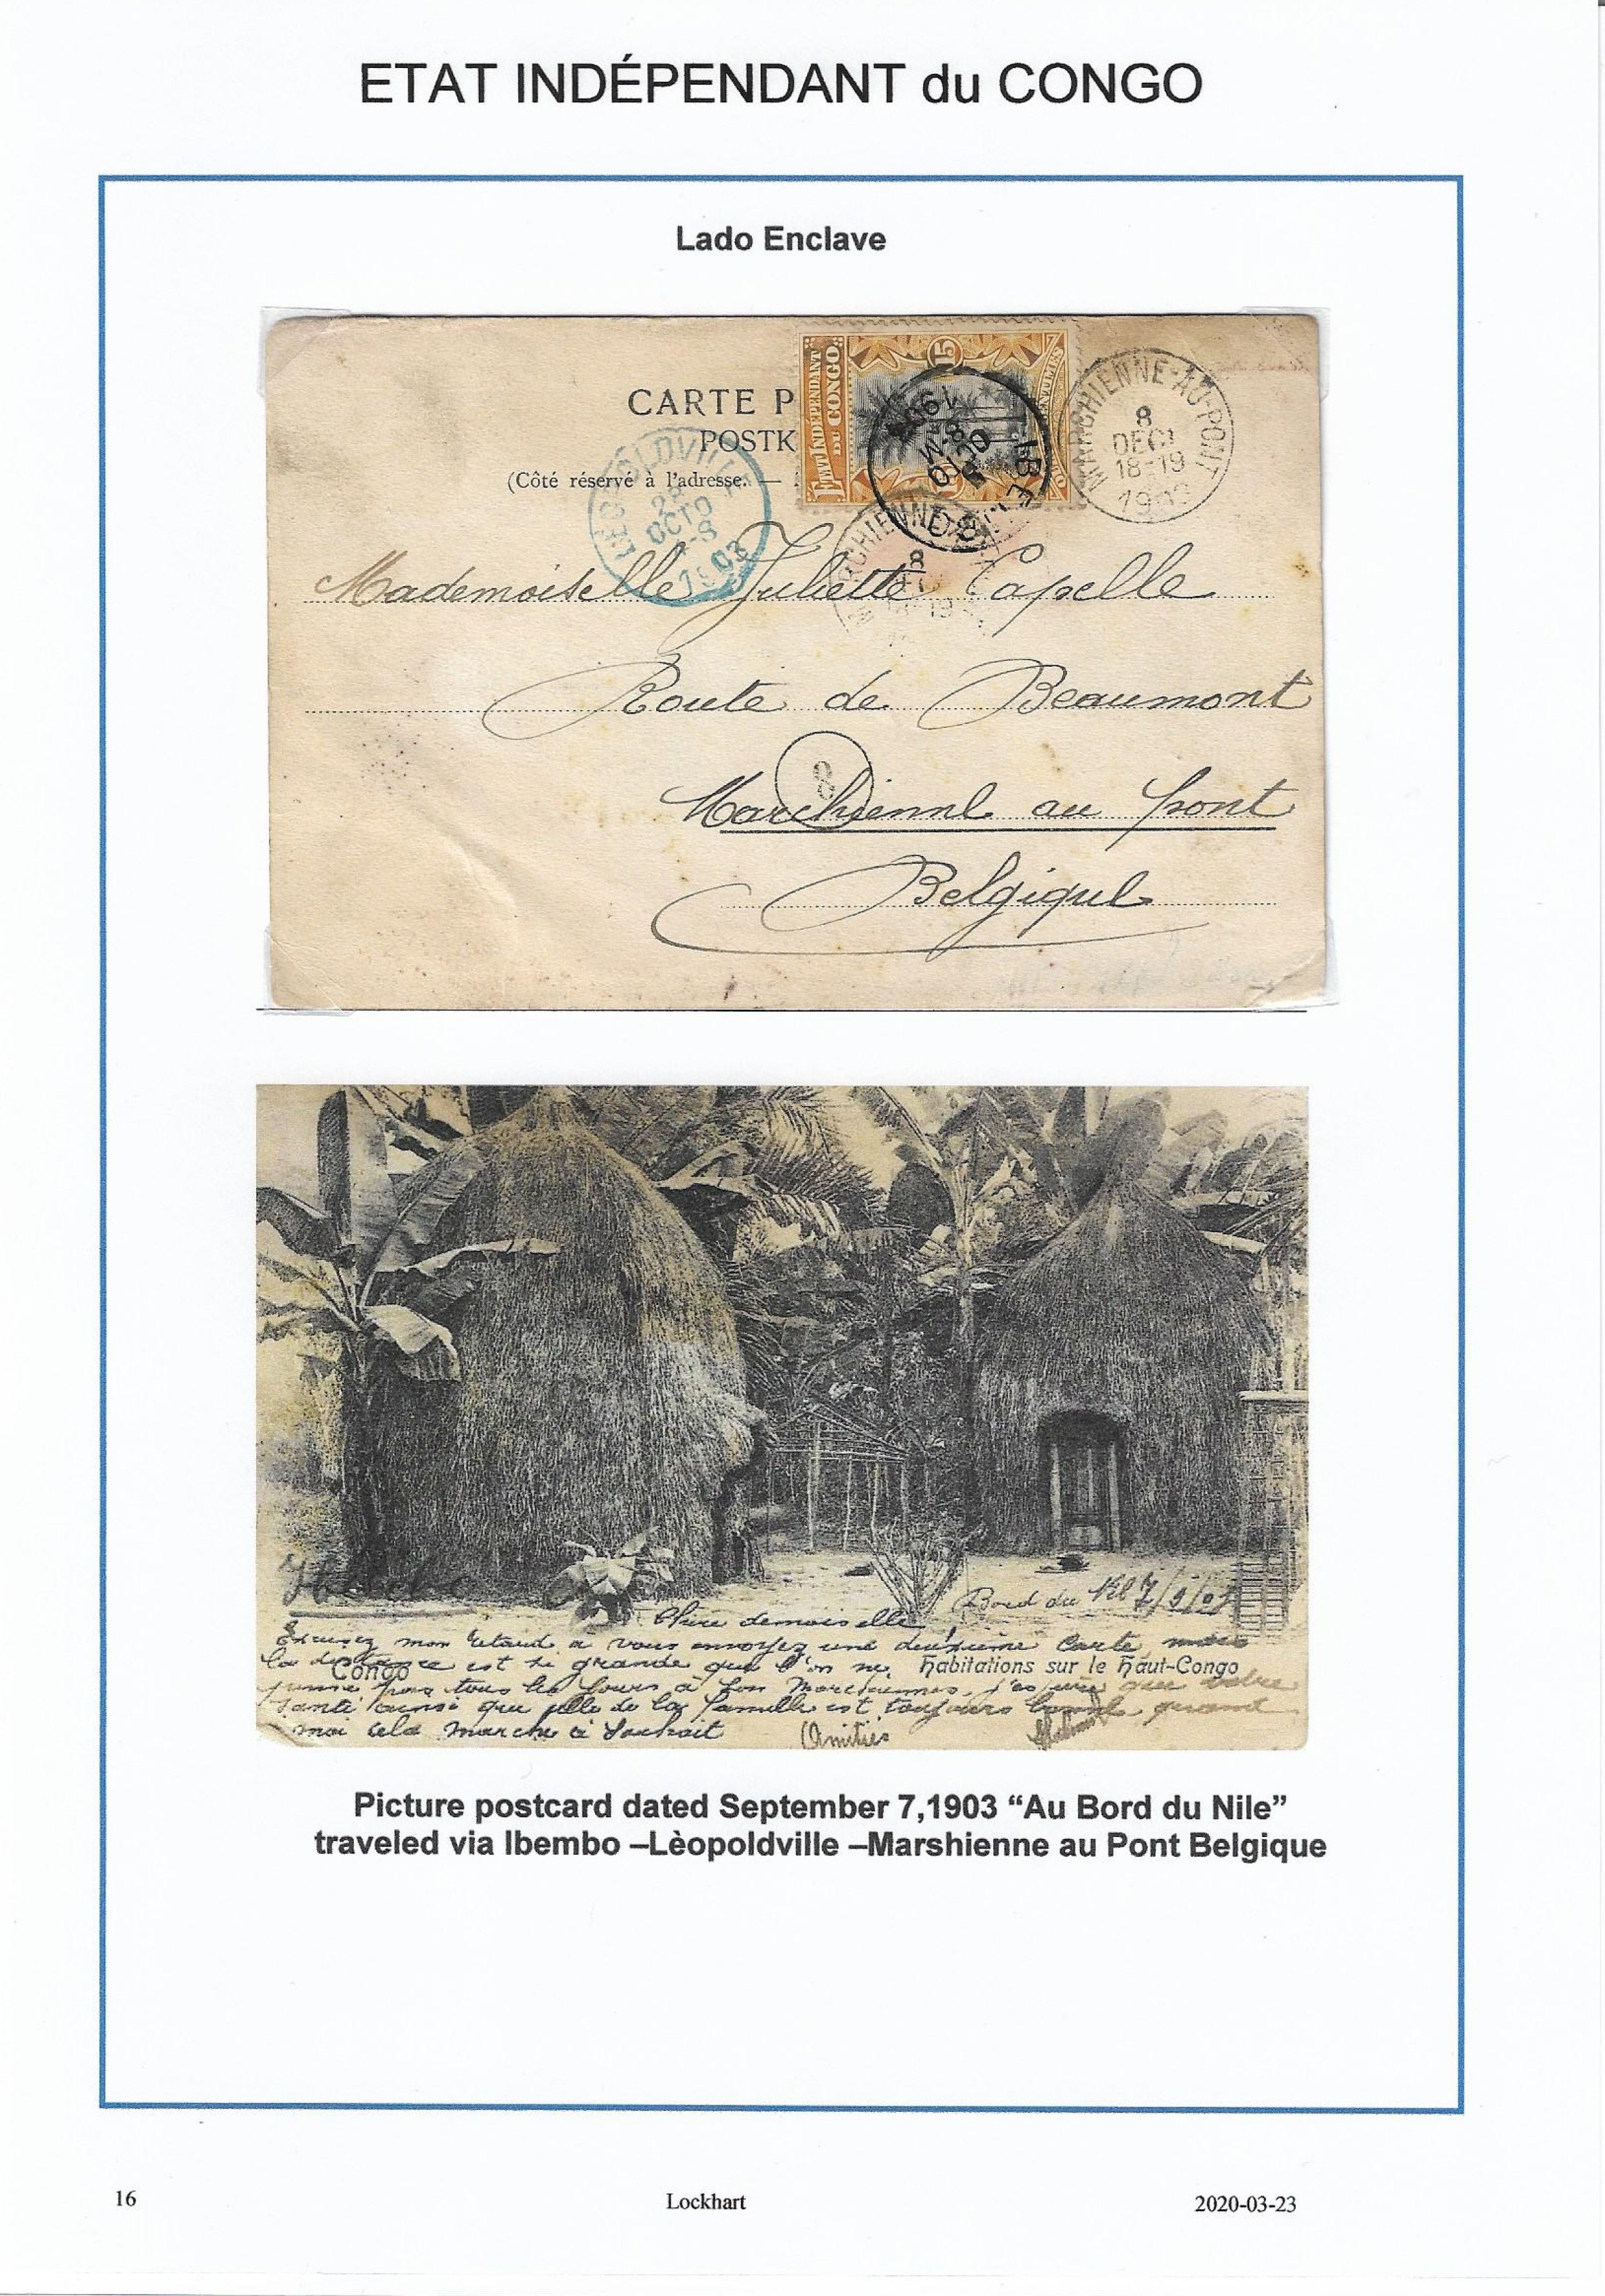 ETAT INDÉPENDANT du CONGO
Lado Enclave
CARTE P
POSTK
(Côté réservé à l'adresse. —
ETAT INDÉPENDANT
DU CONGO
15
CENTIMES
IBEMBO
OCTO
8-M
LÉOPOLDVILLE
28
OCTO
1903
MARCHIENNE-AU-PONT
8
DECI
18-19
1903
8
Mademoiselle Juliette Capelle
Route de Beaumont
8
Marchienne au pont
Belgique
Bord du Nil 7/9/03
Chère demoiselle,
Excusez mon retard a vous envoyez une deuxième carte mais
la distance est si grande que l'on ne
Congo
Habitations sur le Haut-Congo
pense pas tous les jours à son Marchiennes, j'espère que votre
santé ainsi que celle de la famille est toujours bonne quand
moi cela marche à souhait
Amitiés
Picture postcard dated September 7,1903 “Au Bord du Nile”
traveled via Ibembo –Lèopoldville –Marshienne au Pont Belgique
16
Lockhart
2020-03-23